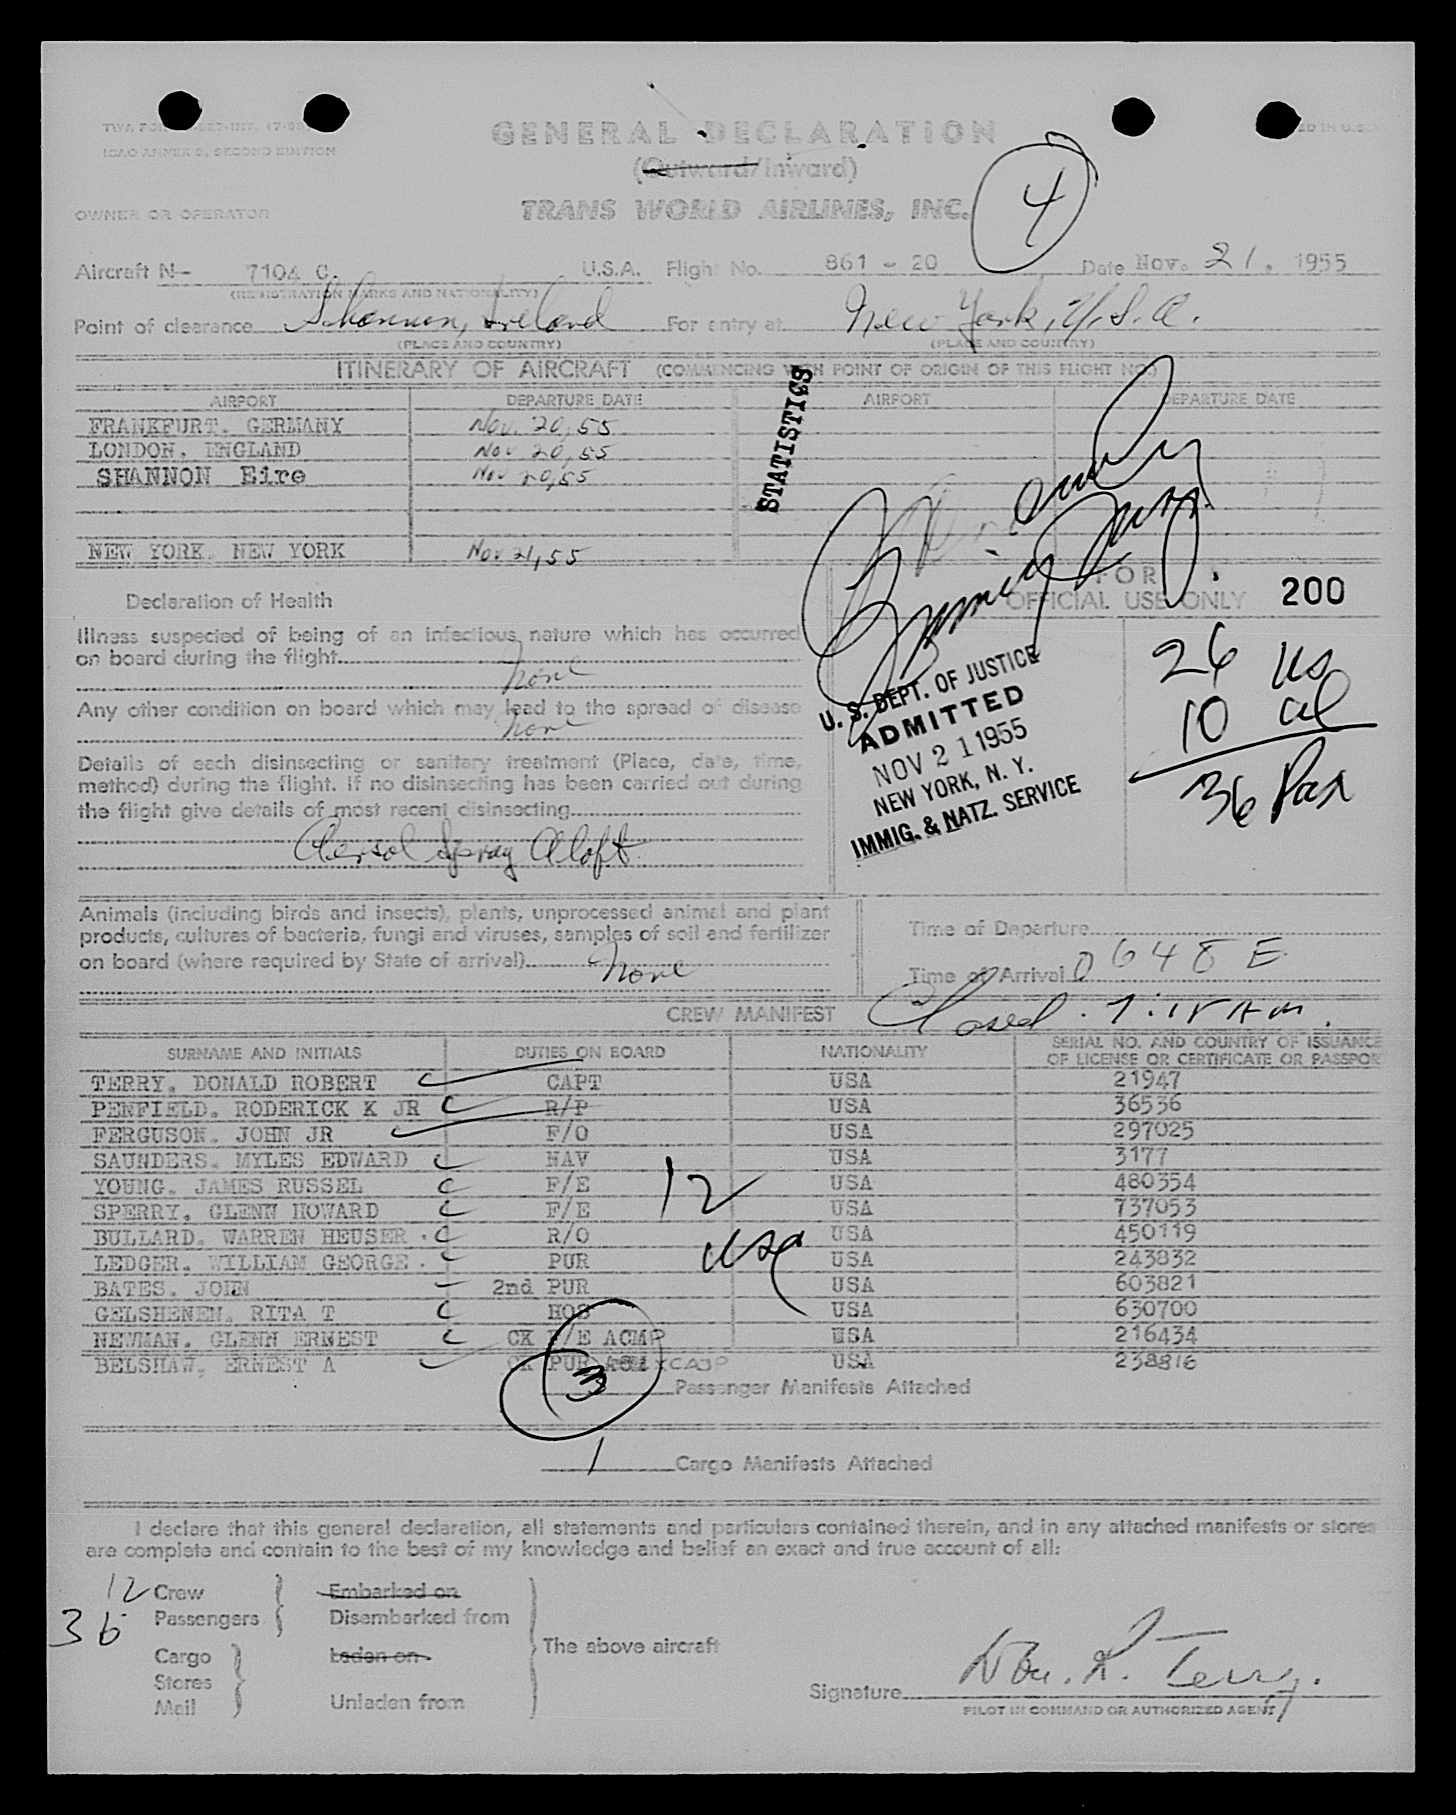 GENERAL DECLARATION
(Outward/Inward)
ICAO ANNEX 9, SECOND EDITION
4
OWNER OR OPERATOR TRANS WORLD AIRLINES, INC.
Aircraft N- 7104 C. U.S.A. Flight No. 861 - 20 Date Nov. 21, 1955
(REGISTRATION MARKS AND NATIONALITY)
Point of clearance Shannon, Ireland For entry at New York, U.S.A.
(PLACE AND COUNTRY) (PLACE AND COUNTRY)
ITINERARY OF AIRCRAFT (COMMENCING WITH POINT OF ORIGIN OF THIS FLIGHT NO.)
AIRPORT DEPARTURE DATE AIRPORT DEPARTURE DATE
FRANKFURT. GERMANY Nov. 20, 55
LONDON. ENGLAND Nov 20, 55
SHANNON Eire Nov 20, 55
NEW YORK. NEW YORK Nov 21, 55
STATISTICS
FOR
OFFICIAL USE ONLY 200
Declaration of Health
Illness suspected of being of an infectious nature which has occurred
on board during the flight
None
Any other condition on board which may lead to the spread of disease
None
Details of each disinsecting or sanitary treatment (Place, date, time,
method) during the flight. If no disinsecting has been carried out during
the flight give details of most recent disinsecting
Aersol Spray Aloft
U. S. DEPT. OF JUSTICE
ADMITTED
NOV 21 1955
NEW YORK, N. Y.
IMMIG. & NATZ. SERVICE
26 us
10 al
36 Pax
Animals (including birds and insects), plants, unprocessed animal and plant
products, cultures of bacteria, fungi and viruses, samples of soil and fertilizer
on board (where required by State of arrival) None
Time of Departure
Time of Arrival 0648 E
CREW MANIFEST
Closed
SURNAME AND INITIALS DUTIES ON BOARD NATIONALITY SERIAL NO. AND COUNTRY OF ISSUANCE
OF LICENSE OR CERTIFICATE OR PASSPOR
TERRY. DONALD ROBERT CAPT USA 21947
PENFIELD. RODERICK K JR R/P USA 36536
FERGUSON. JOHN JR F/O USA 297025
SAUNDERS. MYLES EDWARD NAV USA 3177
YOUNG. JAMES RUSSEL F/E USA 480354
SPERRY, GLENN HOWARD F/E USA 737053
BULLARD. WARREN HEUSER R/O USA 450119
LEDGER. WILLIAM GEORGE PUR USA 243832
BATES. JOHN 2nd PUR USA 603821
GELSHENEN. RITA T HOS USA 630700
NEWMAN. GLENN ERNEST CK F/E ACMP USA 216434
BELSHAW, ERNEST A CK PUR USA 238816
12
usa
3 Passenger Manifests Attached
1 Cargo Manifests Attached
I declare that this general declaration, all statements and particulars contained therein, and in any attached manifests or stores
are complete and contain to the best of my knowledge and belief an exact and true account of all:
12 Crew Embarked on
36 Passengers Disembarked from
The above aircraft
Cargo Laden on
Stores
Mail Unladen from
Signature Don. R. Terry.
PILOT IN COMMAND OR AUTHORIZED AGENT